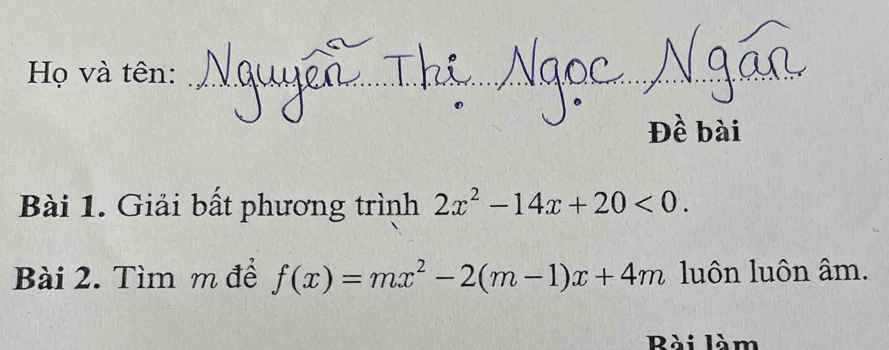 Họ và tên: Nguyễn Thị Ngọc Ngân
Đề bài
Bài 1. Giải bất phương trình 2x² − 14x + 20 < 0.
Bài 2. Tìm m để f(x) = mx² − 2(m − 1)x + 4m luôn luôn âm.
Bài làm